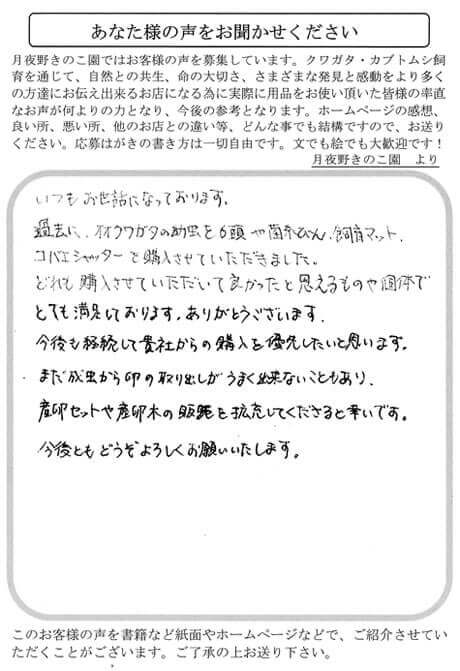 あなた様の声をお聞かせください
月夜野きのこ園ではお客様の声を募集しています。クワガタ・カブトムシ飼
育を通じて、自然との共生、命の大切さ、さまざまな発見と感動をより多く
の方達にお伝え出来るお店になる為に実際に用品をお使い頂いた皆様の率直
なお声が何よりの力となり、今後の参考となります。ホームページの感想、
良い所、悪い所、他のお店との違い等、どんな事でも結構ですので、お送り
ください。応募はがきの書き方は一切自由です。文でも絵でも大歓迎です！
月夜野きのこ園　より
いつもお世話になっております。
過去に、オオクワガタの幼虫を6頭や菌糸びん、飼育マット、
コバエシャッターと購入させていただきました。
どれも購入させていただいて良かったと思えるものや個体で
とても満足しております。ありがとうございます。
今後も継続して貴社からの購入を優先したいと思います。
まだ成虫から卵の取り出しがうまく出来ないこともあり、
産卵セットや産卵木の販売を拡充してくださると幸いです。
今後ともどうぞよろしくお願いいたします。
このお客様の声を書籍など紙面やホームページなどで、ご紹介させてい
ただくことがございます。ご了承の上お送り下さい。